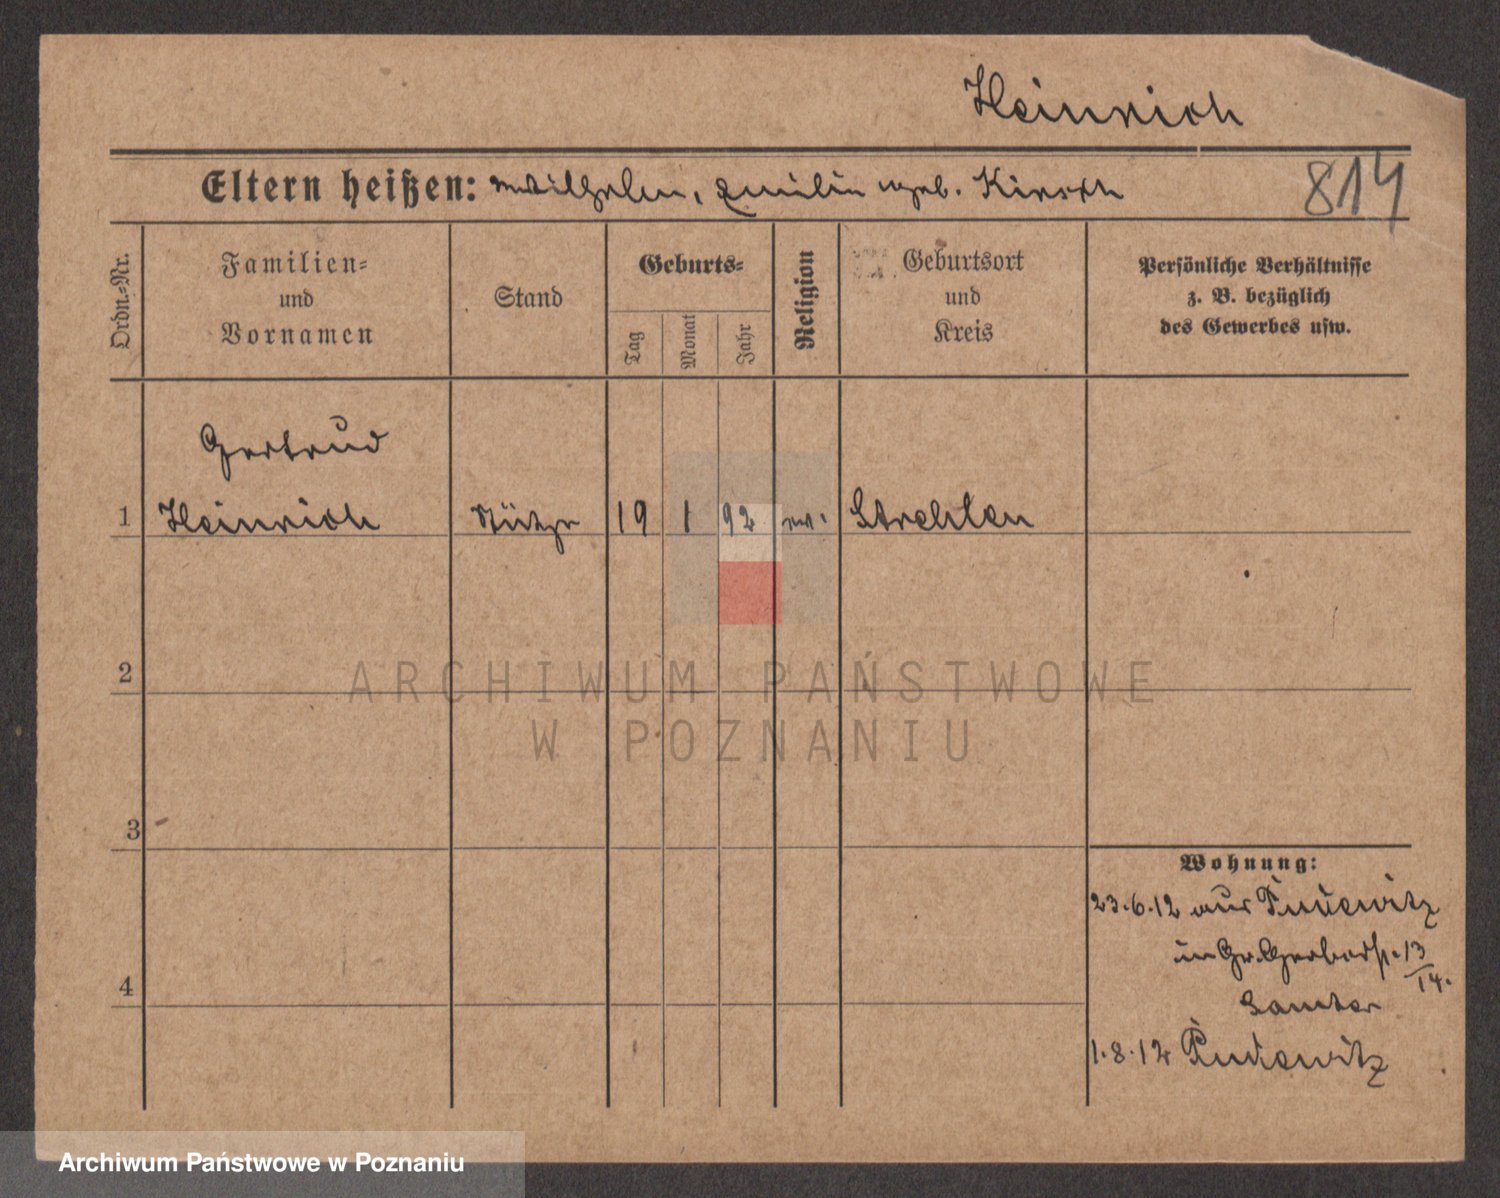 Heinrich
Eltern heißen: Wilhelm, Emilie geb. Kirsch
814
Ordn.-Nr.
Familien-
und
Vornamen
Stand
Geburts-
Tag
Monat
Jahr
Religion
Geburtsort
und
Kreis
Persönliche Verhältnisse
z. B. bezüglich
des Gewerbes usw.
Gertrud
1 Heinrich Stütze 19 1 92 ev. Strehlen
2
3
4
Wohnung:
23.6.12 aus Pudewitz
in Gr. Gerberst. 13/14.
Samter
1.8.12 Pudewitz
ARCHIWUM PAŃSTWOWE
W POZNANIU
Archiwum Państwowe w Poznaniu